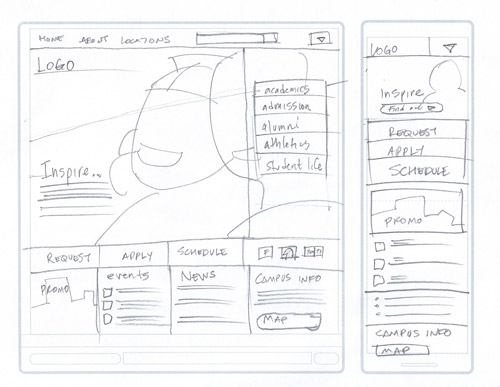 HOME ABOUT LOCATIONS
LOGO
academics
admission
alumni
athletics
student life
Inspire...
REQUEST APPLY SCHEDULE
PROMO
events
NEWS
CAMPUS INFO
MAP
LOGO
Inspire
REQUEST
APPLY
SCHEDULE
PROMO
CAMPUS INFO
MAP